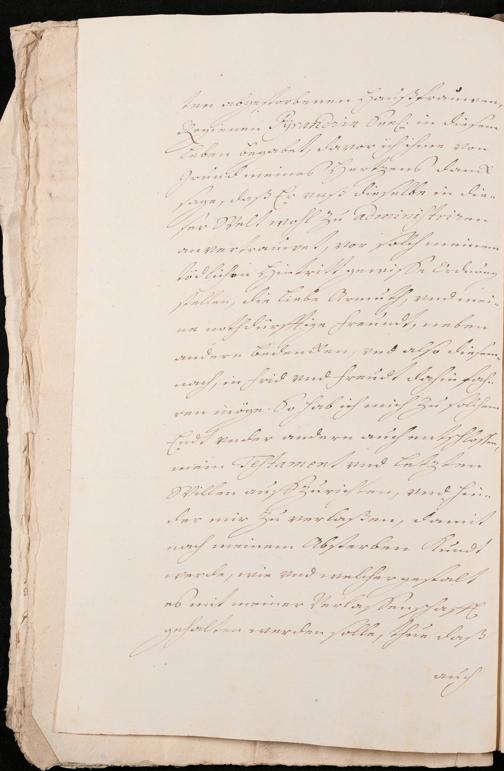 ten abgestorbenen Haußfrauwen,
Reginen Pyrandrin Seel. in diesem
Leben begabet, davor ich ihme von
Grund meines Hertzens danck
sage, daß Er unß dieselbe in die-
ser Welt wohl zu administriren
anvertrauwet, vor solch meinem
tödlichen Hintritt gewisse Ordnung
stellen, die liebe Armuth, und mei-
ne nothdürfftige freundt, neben
andern bedencken, und also diesem
nach, in frid und freudt dahin fah-
ren möge. So hab ich mich zu solchem
Endt under andern auch entschlossen,
mein Testament und letzten
Willen auffzurichten, und hin-
der mir zu verlaßen, damit
nach meinem Absterben Kundt
werde, wie und welcher gestalt
es mit meiner Verlassenschafft
gehalten werden solle, thue daß
auch